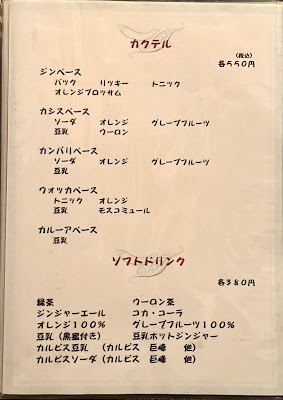 カクテル
(税込)
各550円
ジンベース
バック リッキー トニック
オレンジブロッサム
カシスベース
ソーダ オレンジ グレープフルーツ
豆乳 ウーロン
カンパリベース
ソーダ オレンジ グレープフルーツ
豆乳
ウォッカベース
トニック オレンジ
豆乳 モスコミュール
カルーアベース
豆乳
ソフトドリンク
各380円
緑茶 ウーロン茶
ジンジャーエール コカ・コーラ
オレンジ100% グレープフルーツ100%
豆乳(黒蜜付き) 豆乳ホットジンジャー
カルピス豆乳 (カルピス 巨峰 他)
カルピスソーダ(カルピス 巨峰 他)